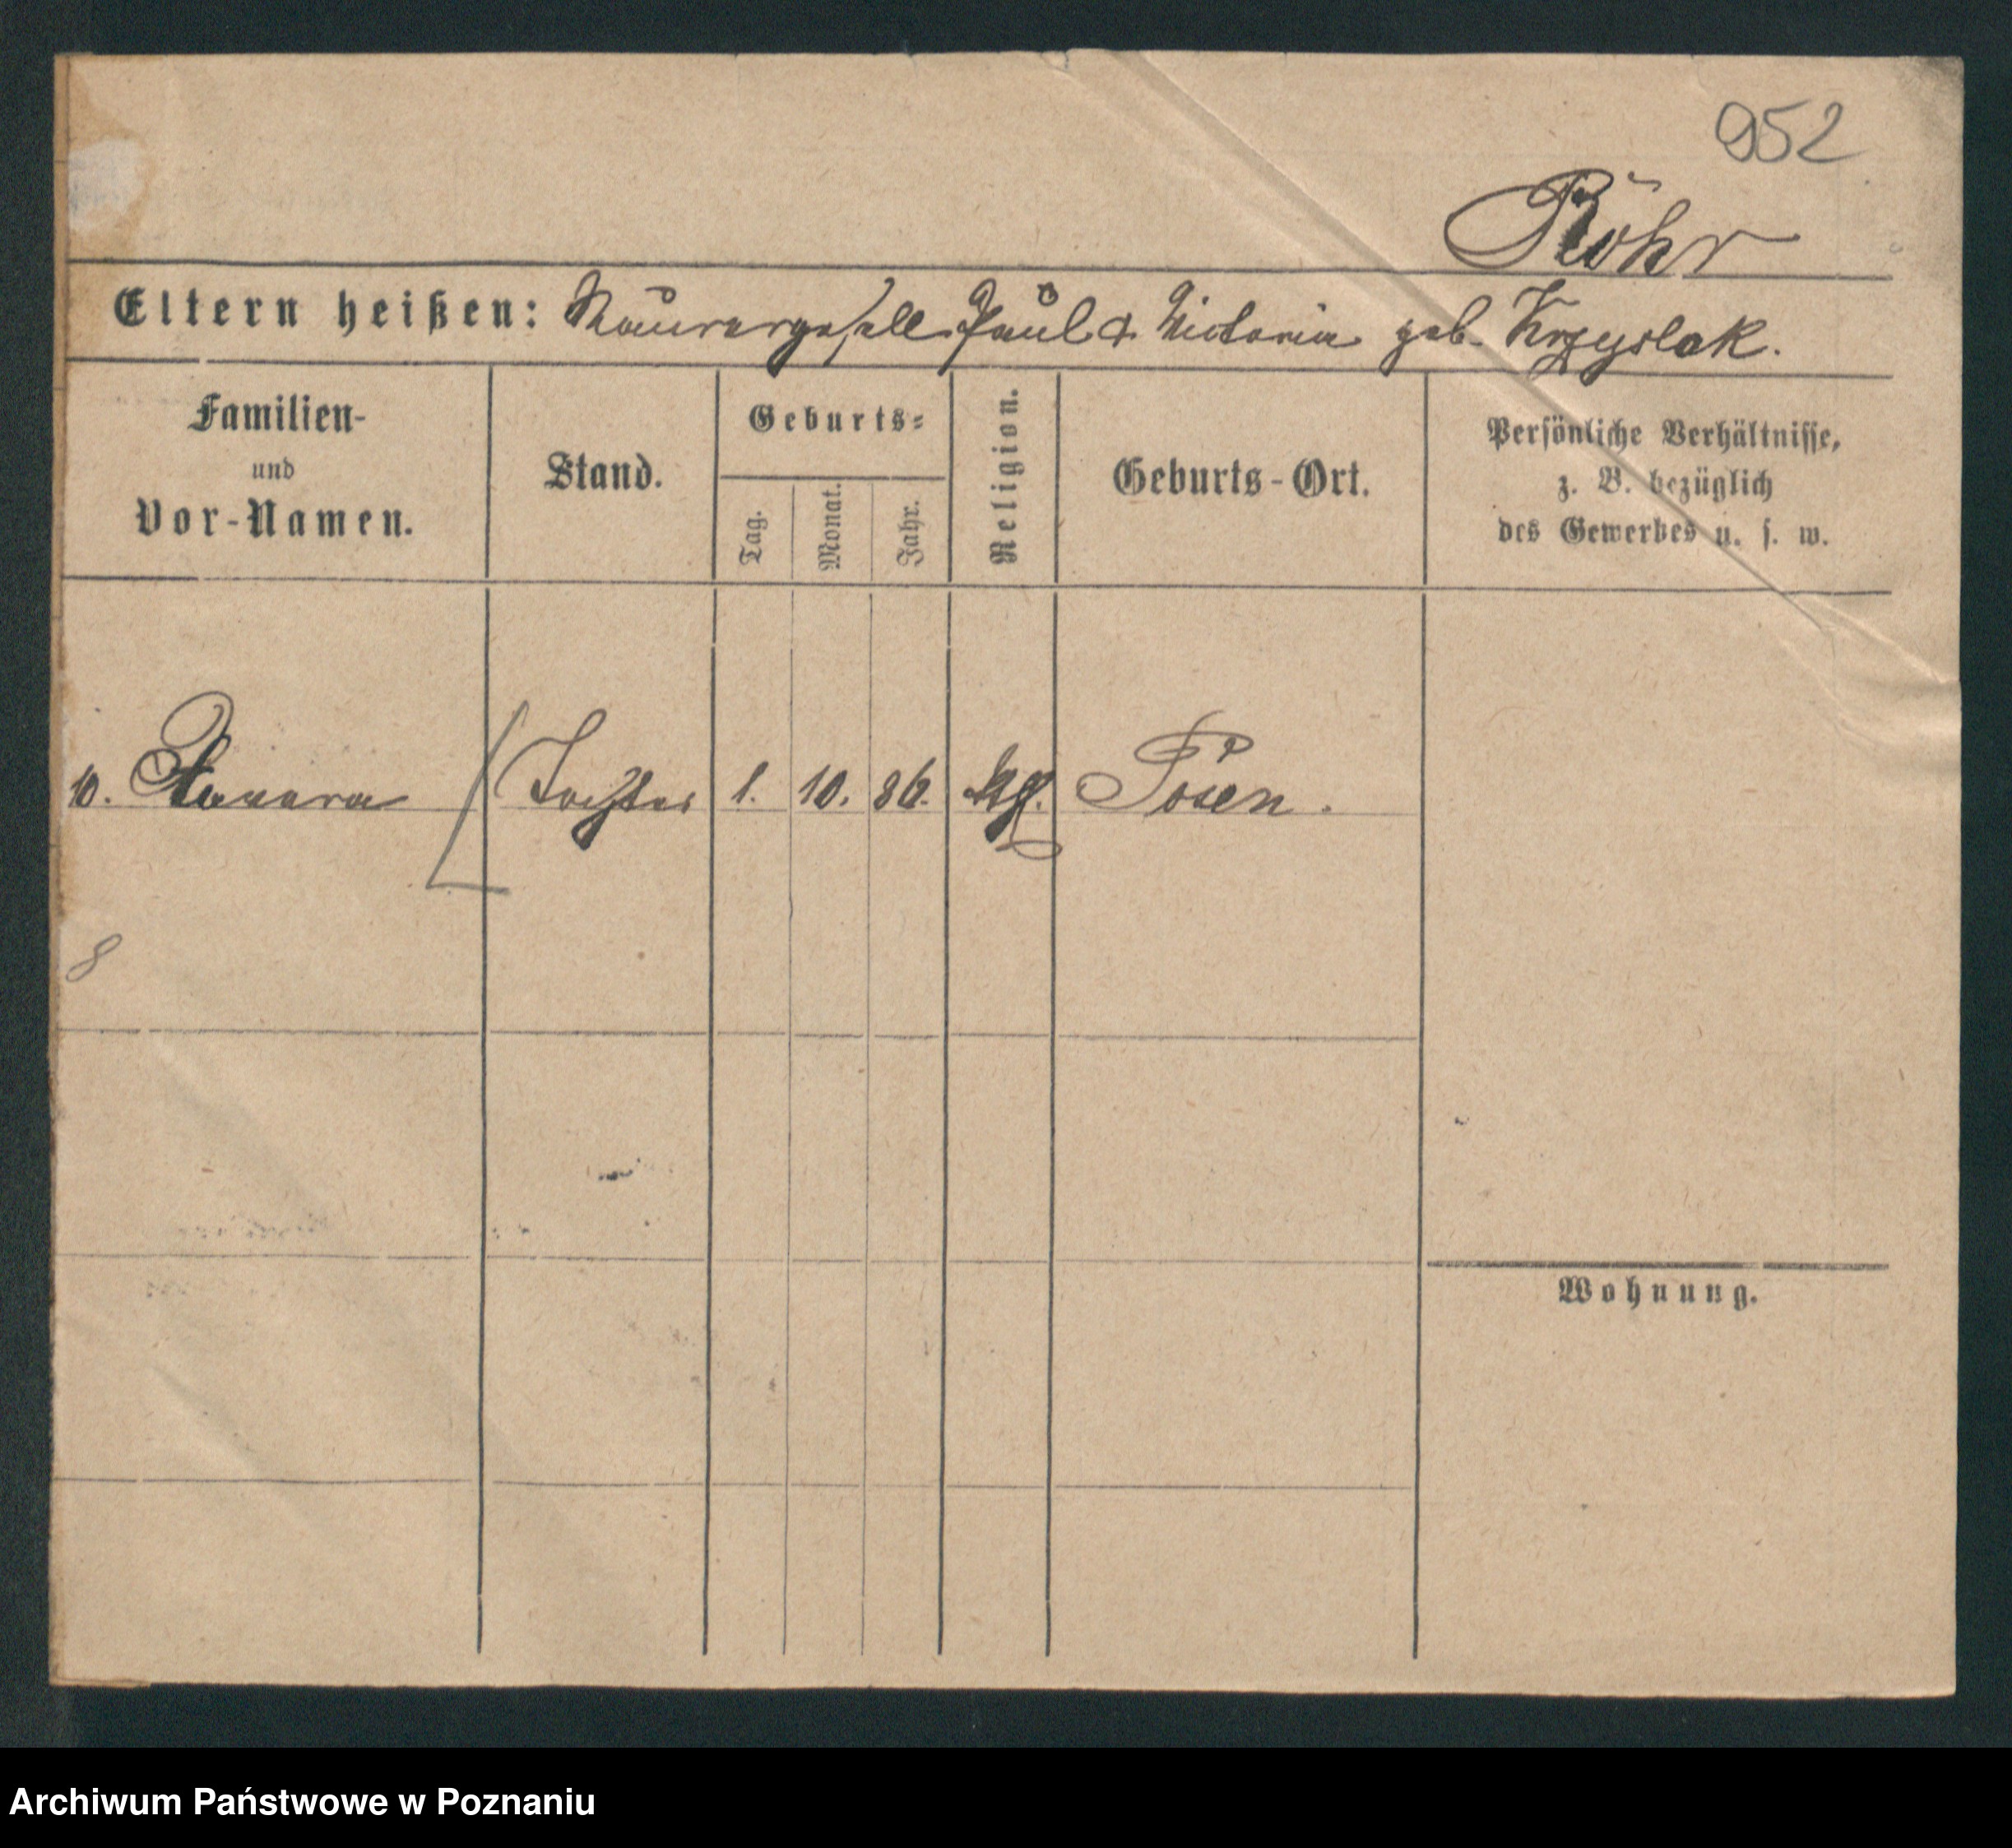 952
Röhr
Eltern heißen: Maurergeselle Paul & Victoria geb. Krzyslak.
Familien-
und
Vor-Namen.
Stand.
Geburts-
Tag.
Monat.
Jahr.
Religion.
Geburts-Ort.
Persönliche Verhältnisse,
z. B. bezüglich
des Gewerbes u. s. w.
10. Tochter 1. 10. 86. Posen.
8
Wohnung.
Archiwum Państwowe w Poznaniu